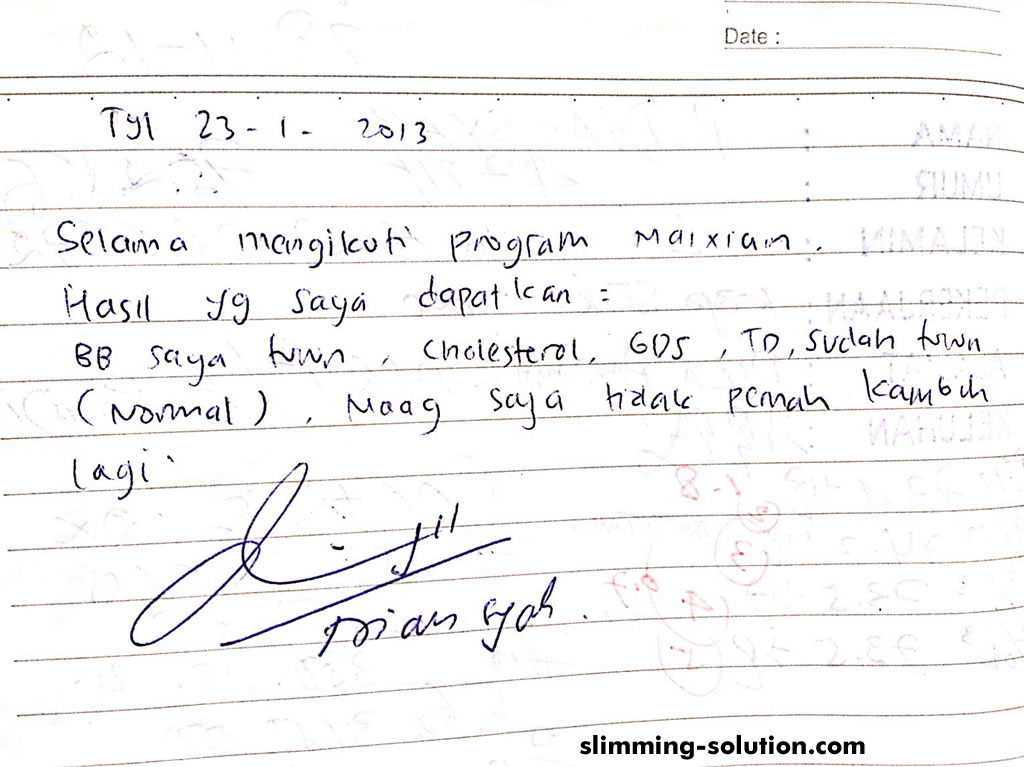 Date :
Tgl 23 - 1 - 2013
Selama mengikuti program Maixiam.
Hasil yg saya dapatkan :
BB saya turun, Cholesterol, GDS, TD, sudah turun
(Normal), Maag saya tidak pernah kambuh
lagi.
slimming-solution.com